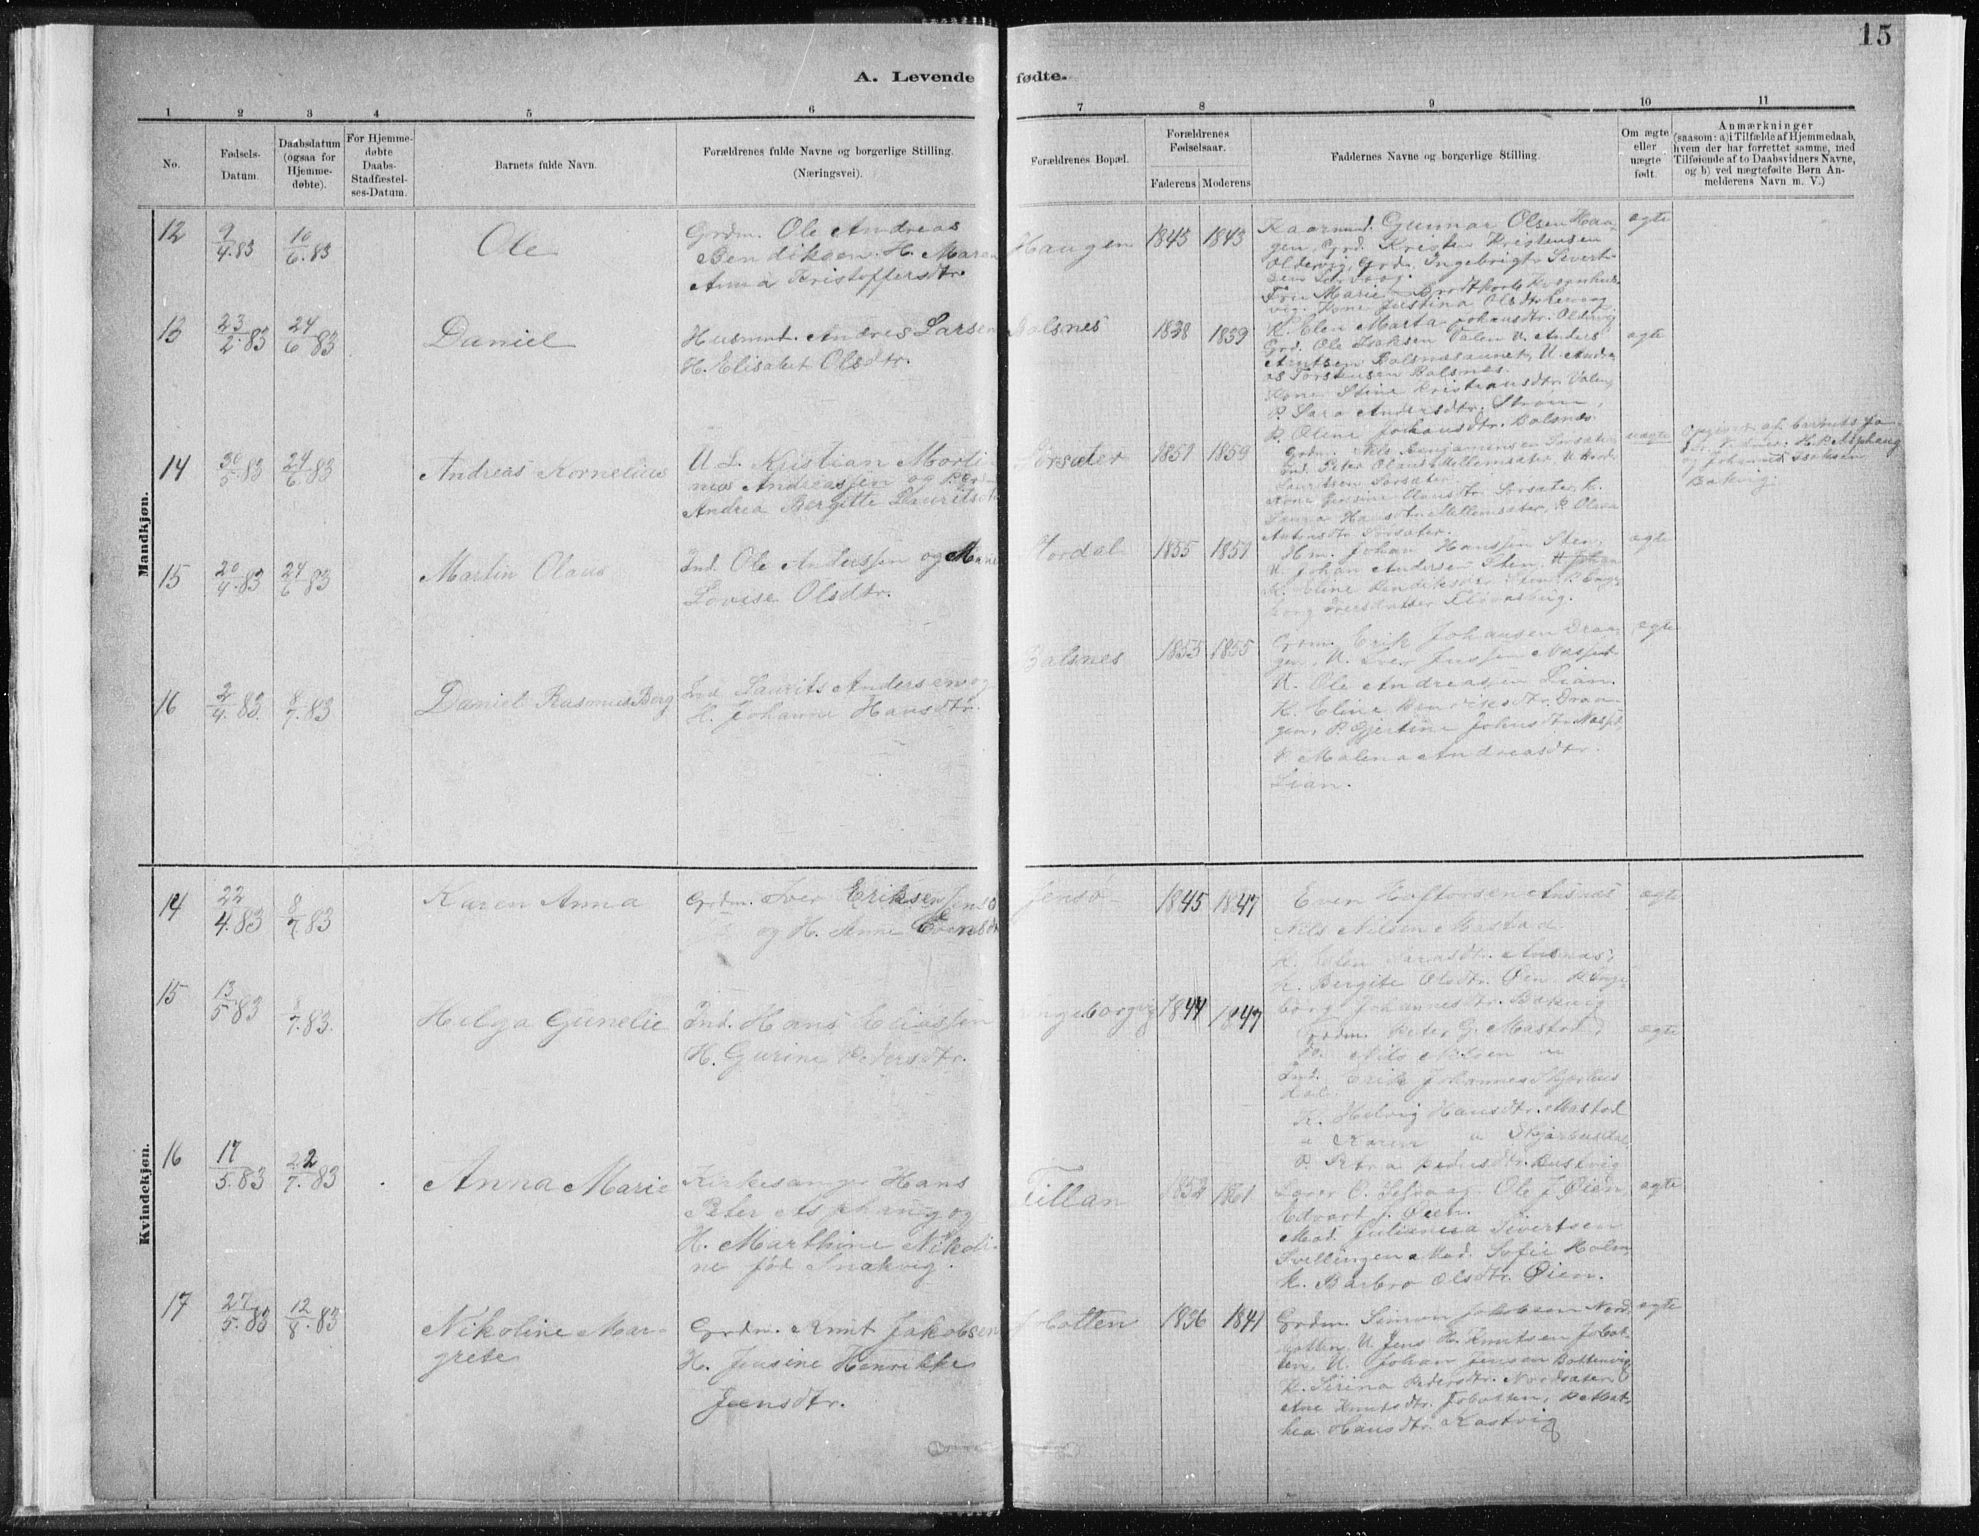 15
A. Levende fødte.
1 2 3 4 5 6 7 8 9 10 11
No.
Fødsels-
Datum.
Daabsdatum
(ogsaa for
Hjemme-
døbte).
For Hjemme-
døbte
Daabs-
Stadfæstel-
ses-Datum.
Barnets fulde Navn.
Forældrenes fulde Navne og borgerlige Stilling.
(Næringsvei).
Forældrenes Bopæl.
Forældrenes
Fødselsaar.
Faderens Moderens
Faddernes Navne og borgerlige Stilling.
Om ægte
eller
uægte
født.
Anmærkninger
(saasom: a) i Tilfælde af Hjemmedaab,
hvem der har forrettet samme, med
Tilføiende af to Daabsvidners Navne,
og b) ved uægtefødte Børn An-
melderens Navn m. V.)
Mandkjøn.
12 9/4.83 10/6.83 Ole
Grdm. Ole Andreas
Bendiksen. H. Maren
Anna Kristoffersdtr.
Haugen 1845 1843
Kaarmd. Gunnar Olsen Hau-
gen, Grd. Kristen Kristensen
Oldervig, Grd. Ingebrigt Sivert-
sen
Fru Marie Brodtkorb
vig. Kone Justina Olsdtr
K. Elen Marta Johansdtr. Oldervig
ægte
13 23/2.83 24/6.83 Daniel
Husmd. Andres Larsen
H. Elisabet Olsdtr.
Balsnes 1838 1839
Grd. Ole Isaksen Valen U. Anders
Arntsen Balsnesaunet, U. Andre-
as Torstensen Balsnes.
Kone Stine Kristiansdtr. Valen,
P. Sara Andersdtr. Strøm,
P. Oline Johansdtr. Balsnes.
ægte
14 30/5.83 24/6.83 Andreas Kornelius
U. S. Kristian Morti-
nus Andreassen og
Andrea Bergitte Lauritsdtr
Sørsæter 1851 1859
Grdm. Nils Benjaminsen Sørsæter
Ind. Peter Olaus Mellemsæter, U.
Lauritsen Sørsæter.
Kone Jensine Olausdtr. Sørsæter, K.
Hansdtr. Mellemsæter, P. Olava
Antonsdtr Sørsæter.
uægte
Opgivet af barnets fa-
H. P. Asphaug
og Johannes Isaksen
Bakvig.
15 20/4.83 24/6.83 Martin Olaus
Ind. Ole Anderssen og
Lovise Olsdtr.
Hordal 1855 1851
Hm. Johan Hanssen Sten,
U. Johan Andersen Sten,
K. Eline Bendiksdtr Sten, P. Inge-
borg Iversdatter
ægte
16 2/4.83 8/7.83 Daniel Rasmus Berg
Ind Laurits Andersen og
H. Johanne Hansdtr.
Balsnes 1855 1855
Grdm. Erik Johansen Draa-
gen, U. Iver Jenssen
U. Ole Andreasen Lian.
K. Eline Hendriksdtr. Draa-
gen, P. Gjertine Johnsdtr.
P. Malena Andreasdtr.
Lian.
ægte
Kvindekjøn.
14 22/4.83 8/7.83 Karen Anna
Grdm. Iver Eriksen Jensø
og H. Anne Evensdtr
Jensø 1845 1847
Even Hoftorsen Ansnes
Nils Nilsen Mastad.
K. Elen Larsdtr. Ansnes;
K. Bergite Olsdtr. Øen P. Inge-
borg Johannesdtr. Bakvig
ægte
15 13/5.83 8/7.83 Helga Gunelie
Ind. Hans Eliassen
H. Gurine Pedersdtr.
Ingeborgvig 1844 1847
Grdm. Peter G. Mastad,
Do. Nils Nilsen "
Ind. Erik Johannes Skjærbus-
dal.
K. Helvig Hansdtr. Mastad
" Karen " Skjærbusdal,
P. Petra Pedersdtr. Bustvig
ægte
16 17/5.83 22/7.83 Anna Marie
Kirkesanger Hans
Peter Asphaug og
H. Marthine Nikoli-
ne fød Snekvig.
Tillan 1852 1861
Lærer O. Selvaag Ole J. Øien
Edvard J. Øien.
Mad. Julianna Sivertsen
Svellingen Mad. Sofie Holm
K. Barbro Olsdtr. Øien.
ægte
17 27/5.83 12/8.83 Nikoline Mar-
grete
Grdm. Knut Jakobsen
H. Jensine Henrikke
Jensdtr.
Jøbotten 1836 1841
Grdm. Simon Jakobsen Nord-
botten U. Jens H. Knutsen Jøbot-
ten, U. Johan Jensen Bottenvig
K. Serina Pedersdtr. Nordsæter
Ane Knutsdtr. Jøbotten, P. Mat-
hea Hansdtr. Kastvig
ægte